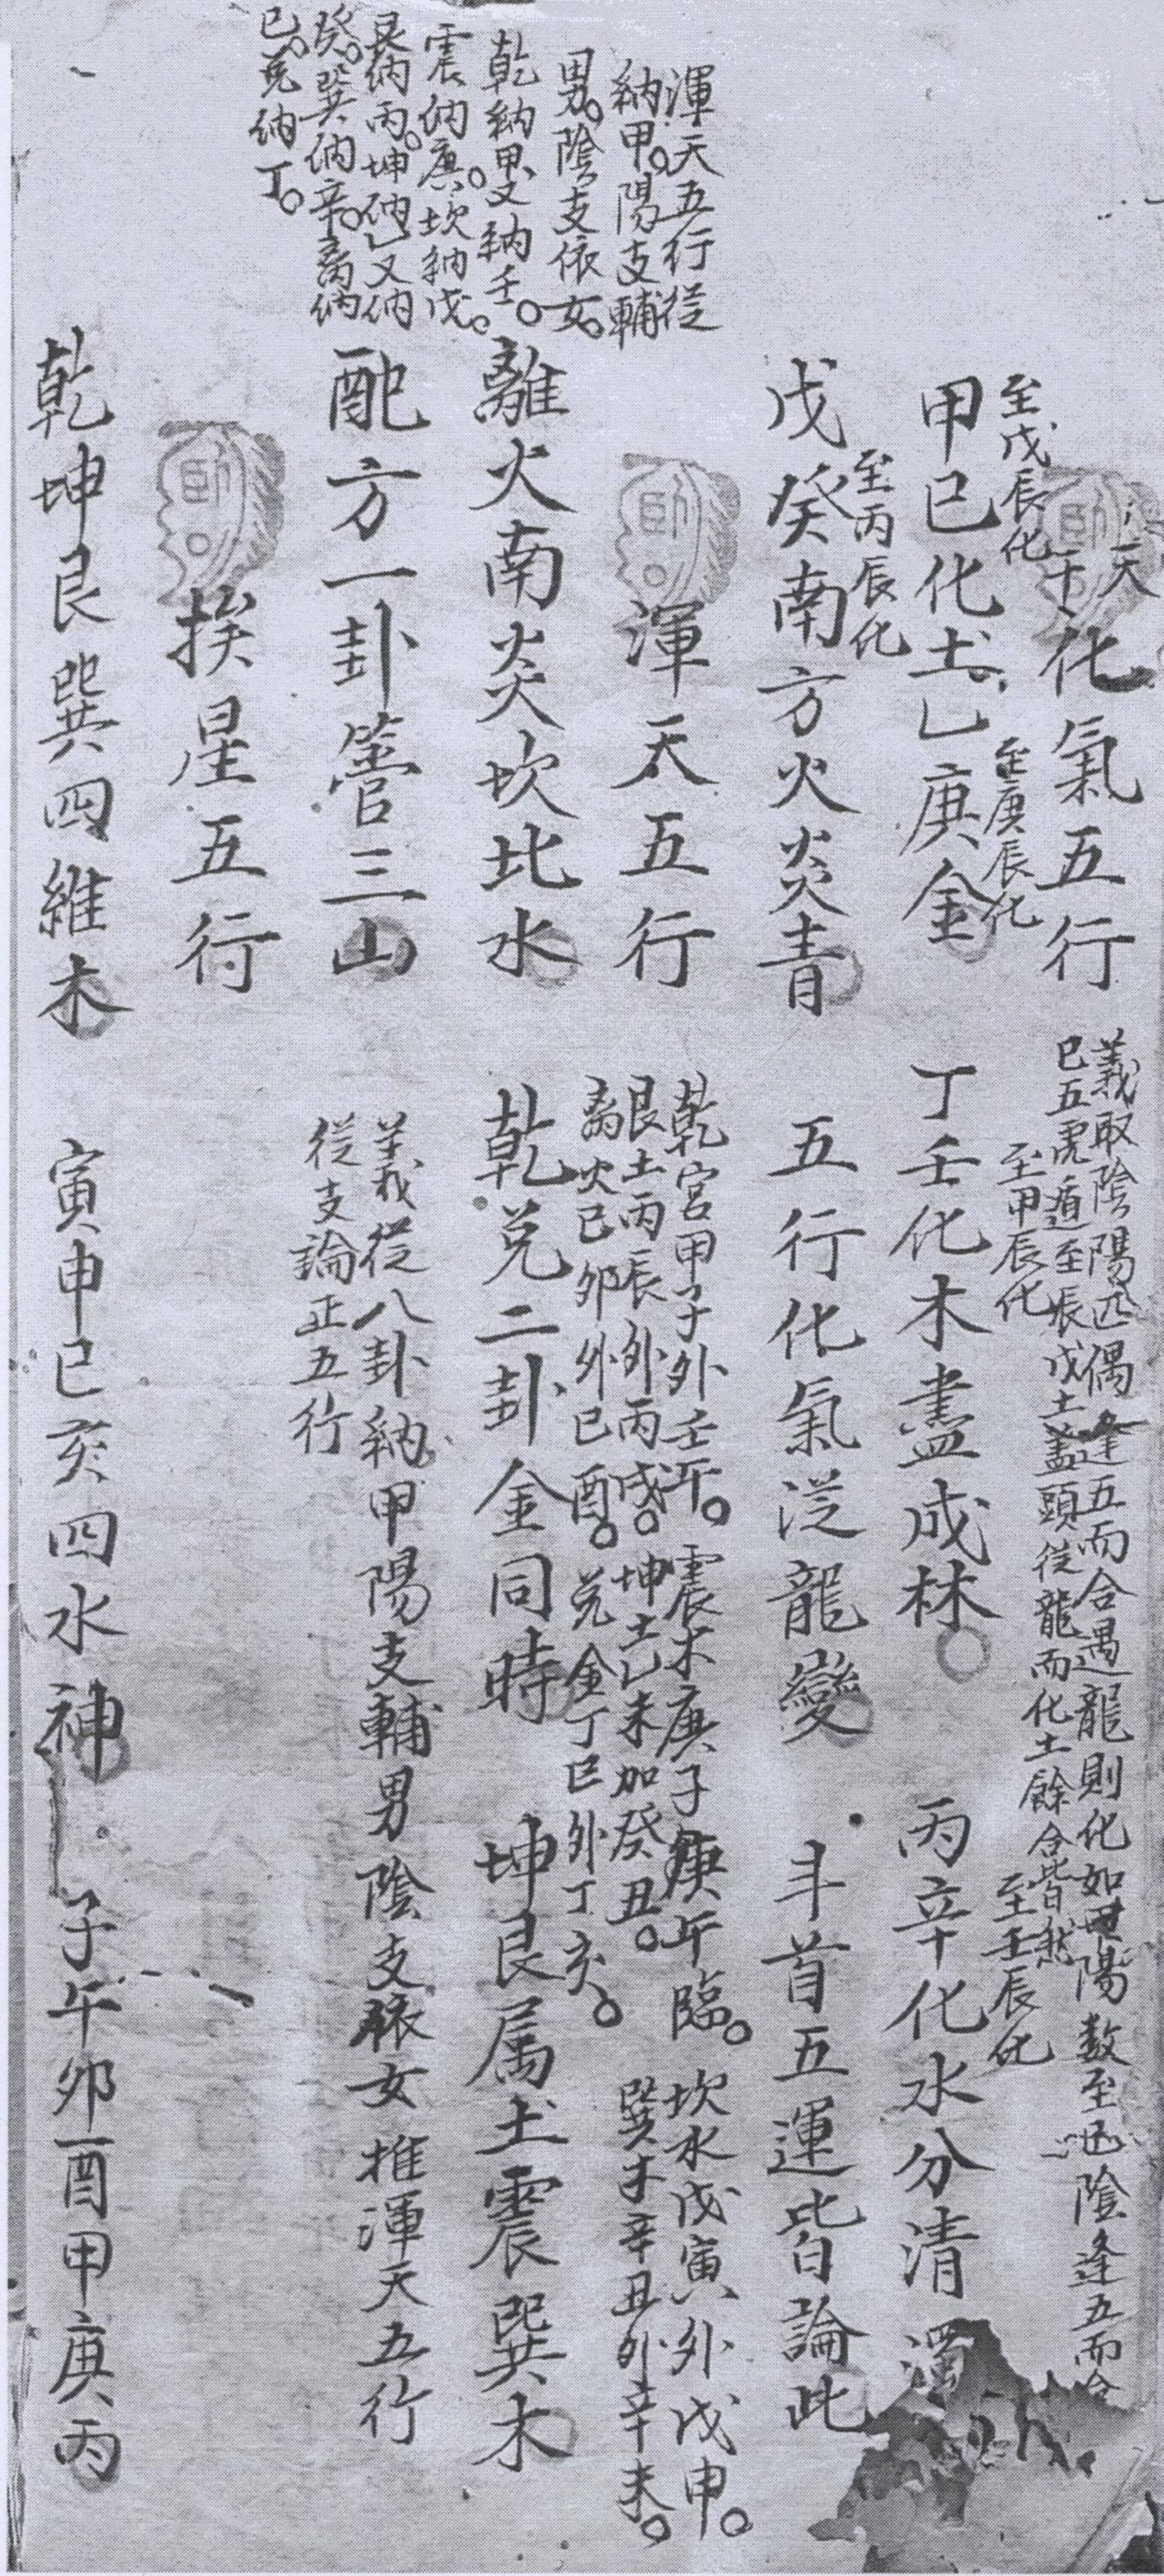 天
十化氣五行
義取陰陽匹偶逢五而合遇龍則化如甲陽数至己陰逢五而合
己五虎遁至辰戊土盖頭従龍而化土餘合皆然
至戊辰化
至庚辰化
至甲辰化
至壬辰化
甲己化土乙庚金 丁壬化木盡成林 丙辛化水分清濁
至丙辰化
戊癸南方火炎青 五行化氣従龍變 斗首五運皆論此
渾天五行従
納甲。陽支輔
男。陰支依女。
乾納甲又納壬。
震納庚。坎納戊。
艮納丙。坤納乙又納
癸。巽納辛。离納
己。兌納丁。
渾天五行
乾宮甲子外壬午。震木庚子庚午臨。坎水戊寅外戊申。
艮土丙辰外丙戌。坤土乙未加癸丑。巽木辛丑外辛未。
离火己卯外己酉。兌金丁巳外丁亥。
離火南炎坎北水 乾兌二卦金同時 坤艮属土震巽木
配方一卦管三山
義従八卦納甲陽支輔男陰支依女推渾天五行
従支論正五行
挨星五行
乾坤艮巽四維木 寅申巳亥四水神 子午卯酉甲庚丙